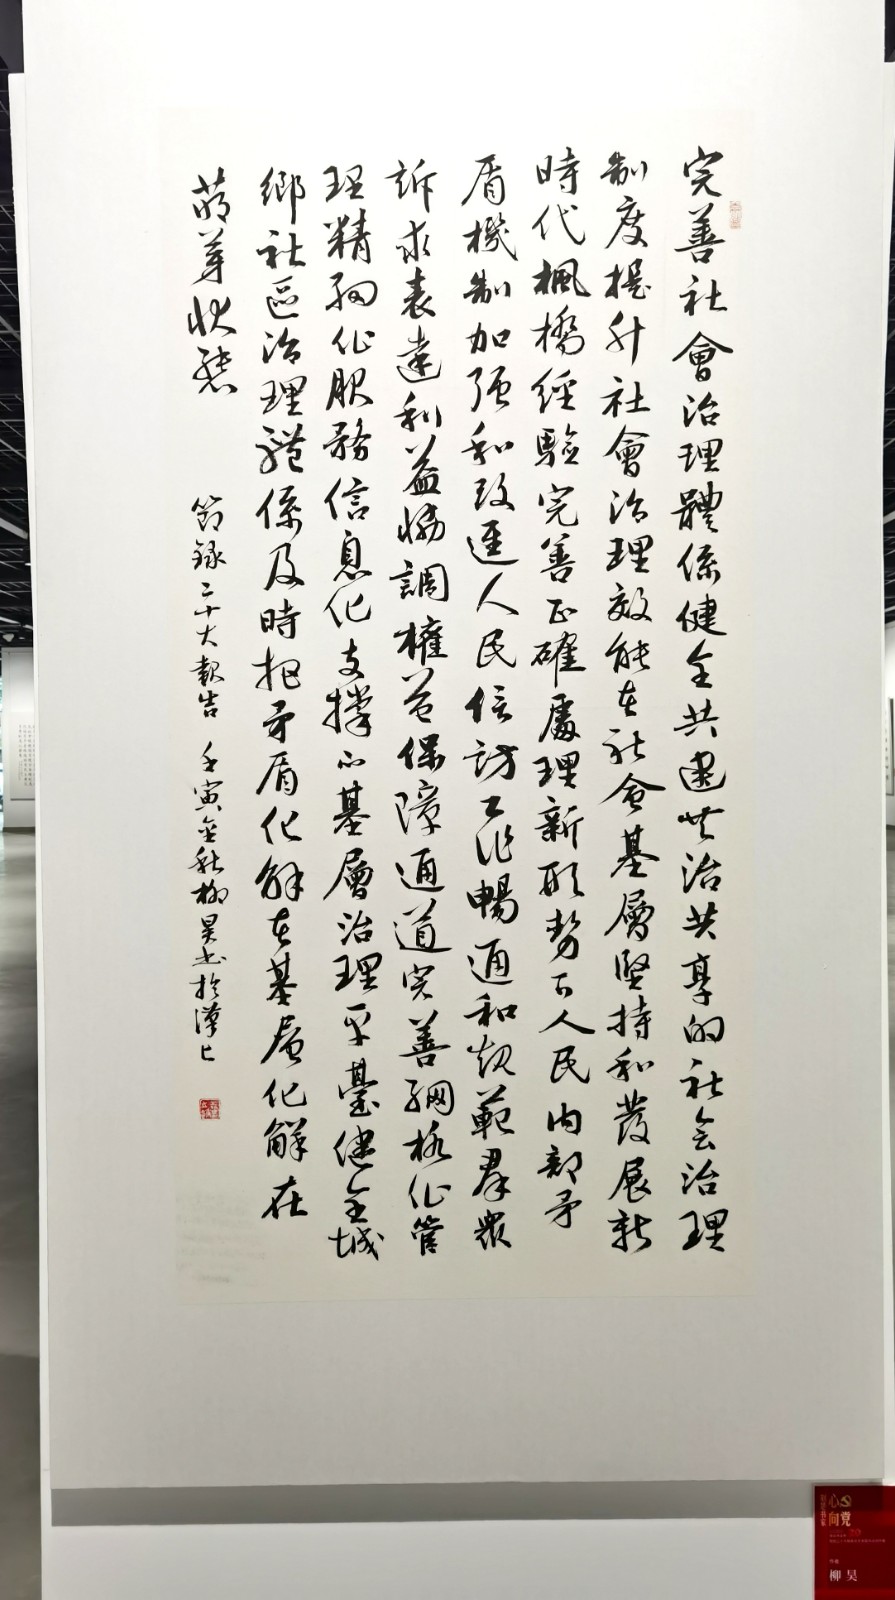 完善社會治理體係健全共建共治共享的社会治理
制度提升社會治理效能在社会基層堅持和發展新
時代楓橋經驗完善正確處理新形勢下人民内部矛
盾機制加强和改進人民信訪工作暢通和規範群衆
訴求表達利益協調權益保障通道完善網格化管
理精細化服務信息化支撑的基層治理平臺健全城
鄉社區治理體係及時把矛盾化解在基層化解在
萌芽狀態
節錄二十大報告 壬寅金秋柳昊書於漢上
心向党
作者
柳昊